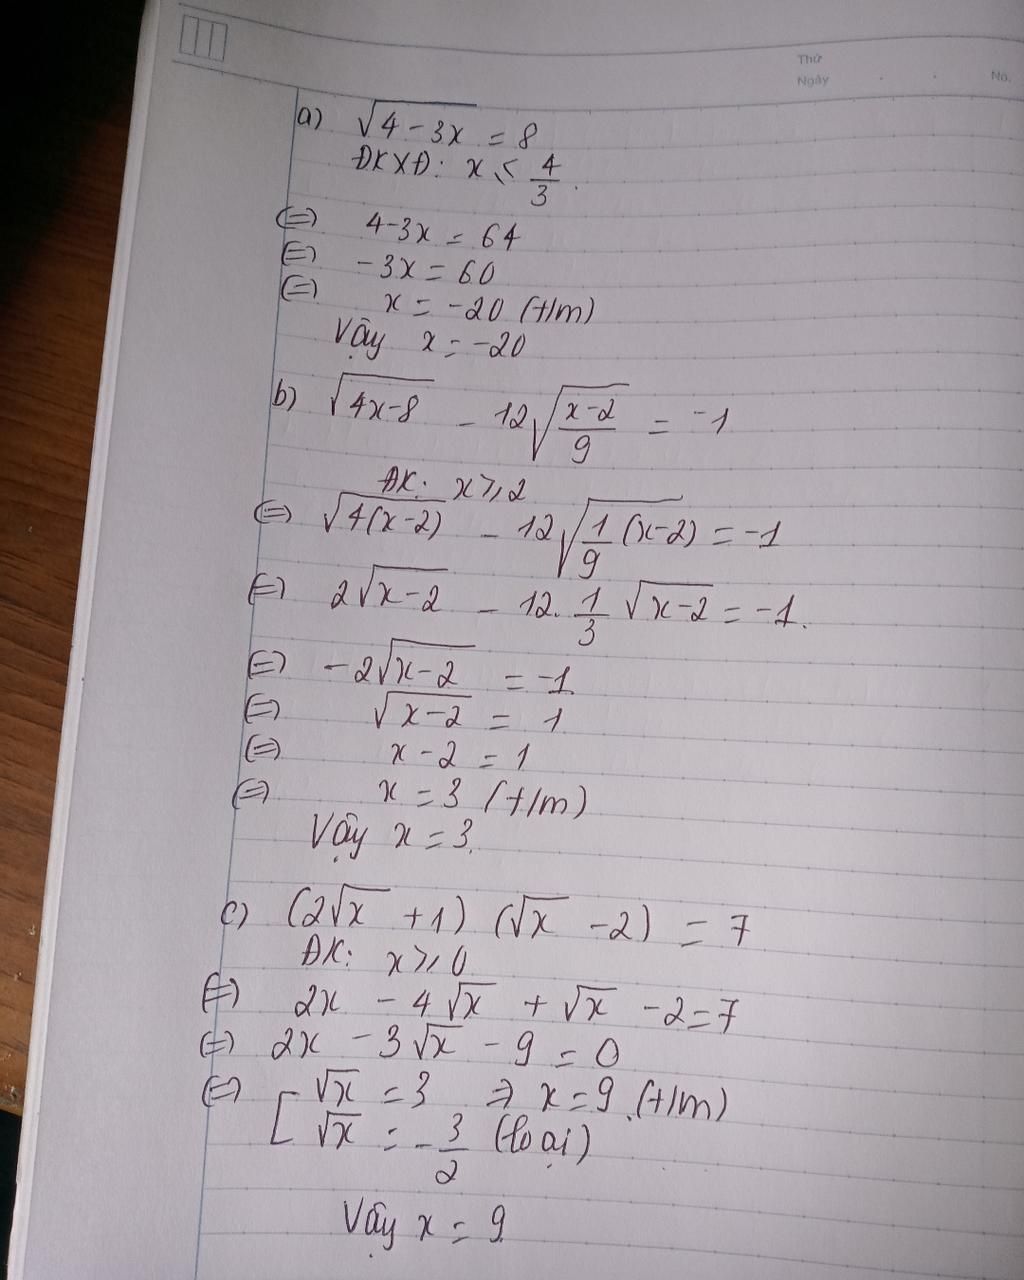 Thứ
Ngày
No.
a) √(4-3x) = 8
ĐKXĐ: x ≤ 4/3.
⇔ 4-3x = 64
⇔ -3x = 60
⇔ x = -20 (t/m)
Vậy x = -20
b) √(4x-8) - 12√((x-2)/9) = -1
ĐK: x ≥ 2
⇔ √(4(x-2)) - 12√(1/9 (x-2)) = -1
⇔ 2√(x-2) - 12. 1/3 √(x-2) = -1.
⇔ -2√(x-2) = -1
⇔ √(x-2) = 1
⇔ x-2 = 1
⇔ x = 3 (t/m)
Vậy x = 3.
c) (2√x + 1) (√x - 2) = 7
ĐK: x ≥ 0
⇔ 2x - 4√x + √x - 2 = 7
⇔ 2x - 3√x - 9 = 0
⇔ [ √x = 3 ⇒ x = 9 (t/m)
√x = -3/2 (loại)
Vậy x = 9